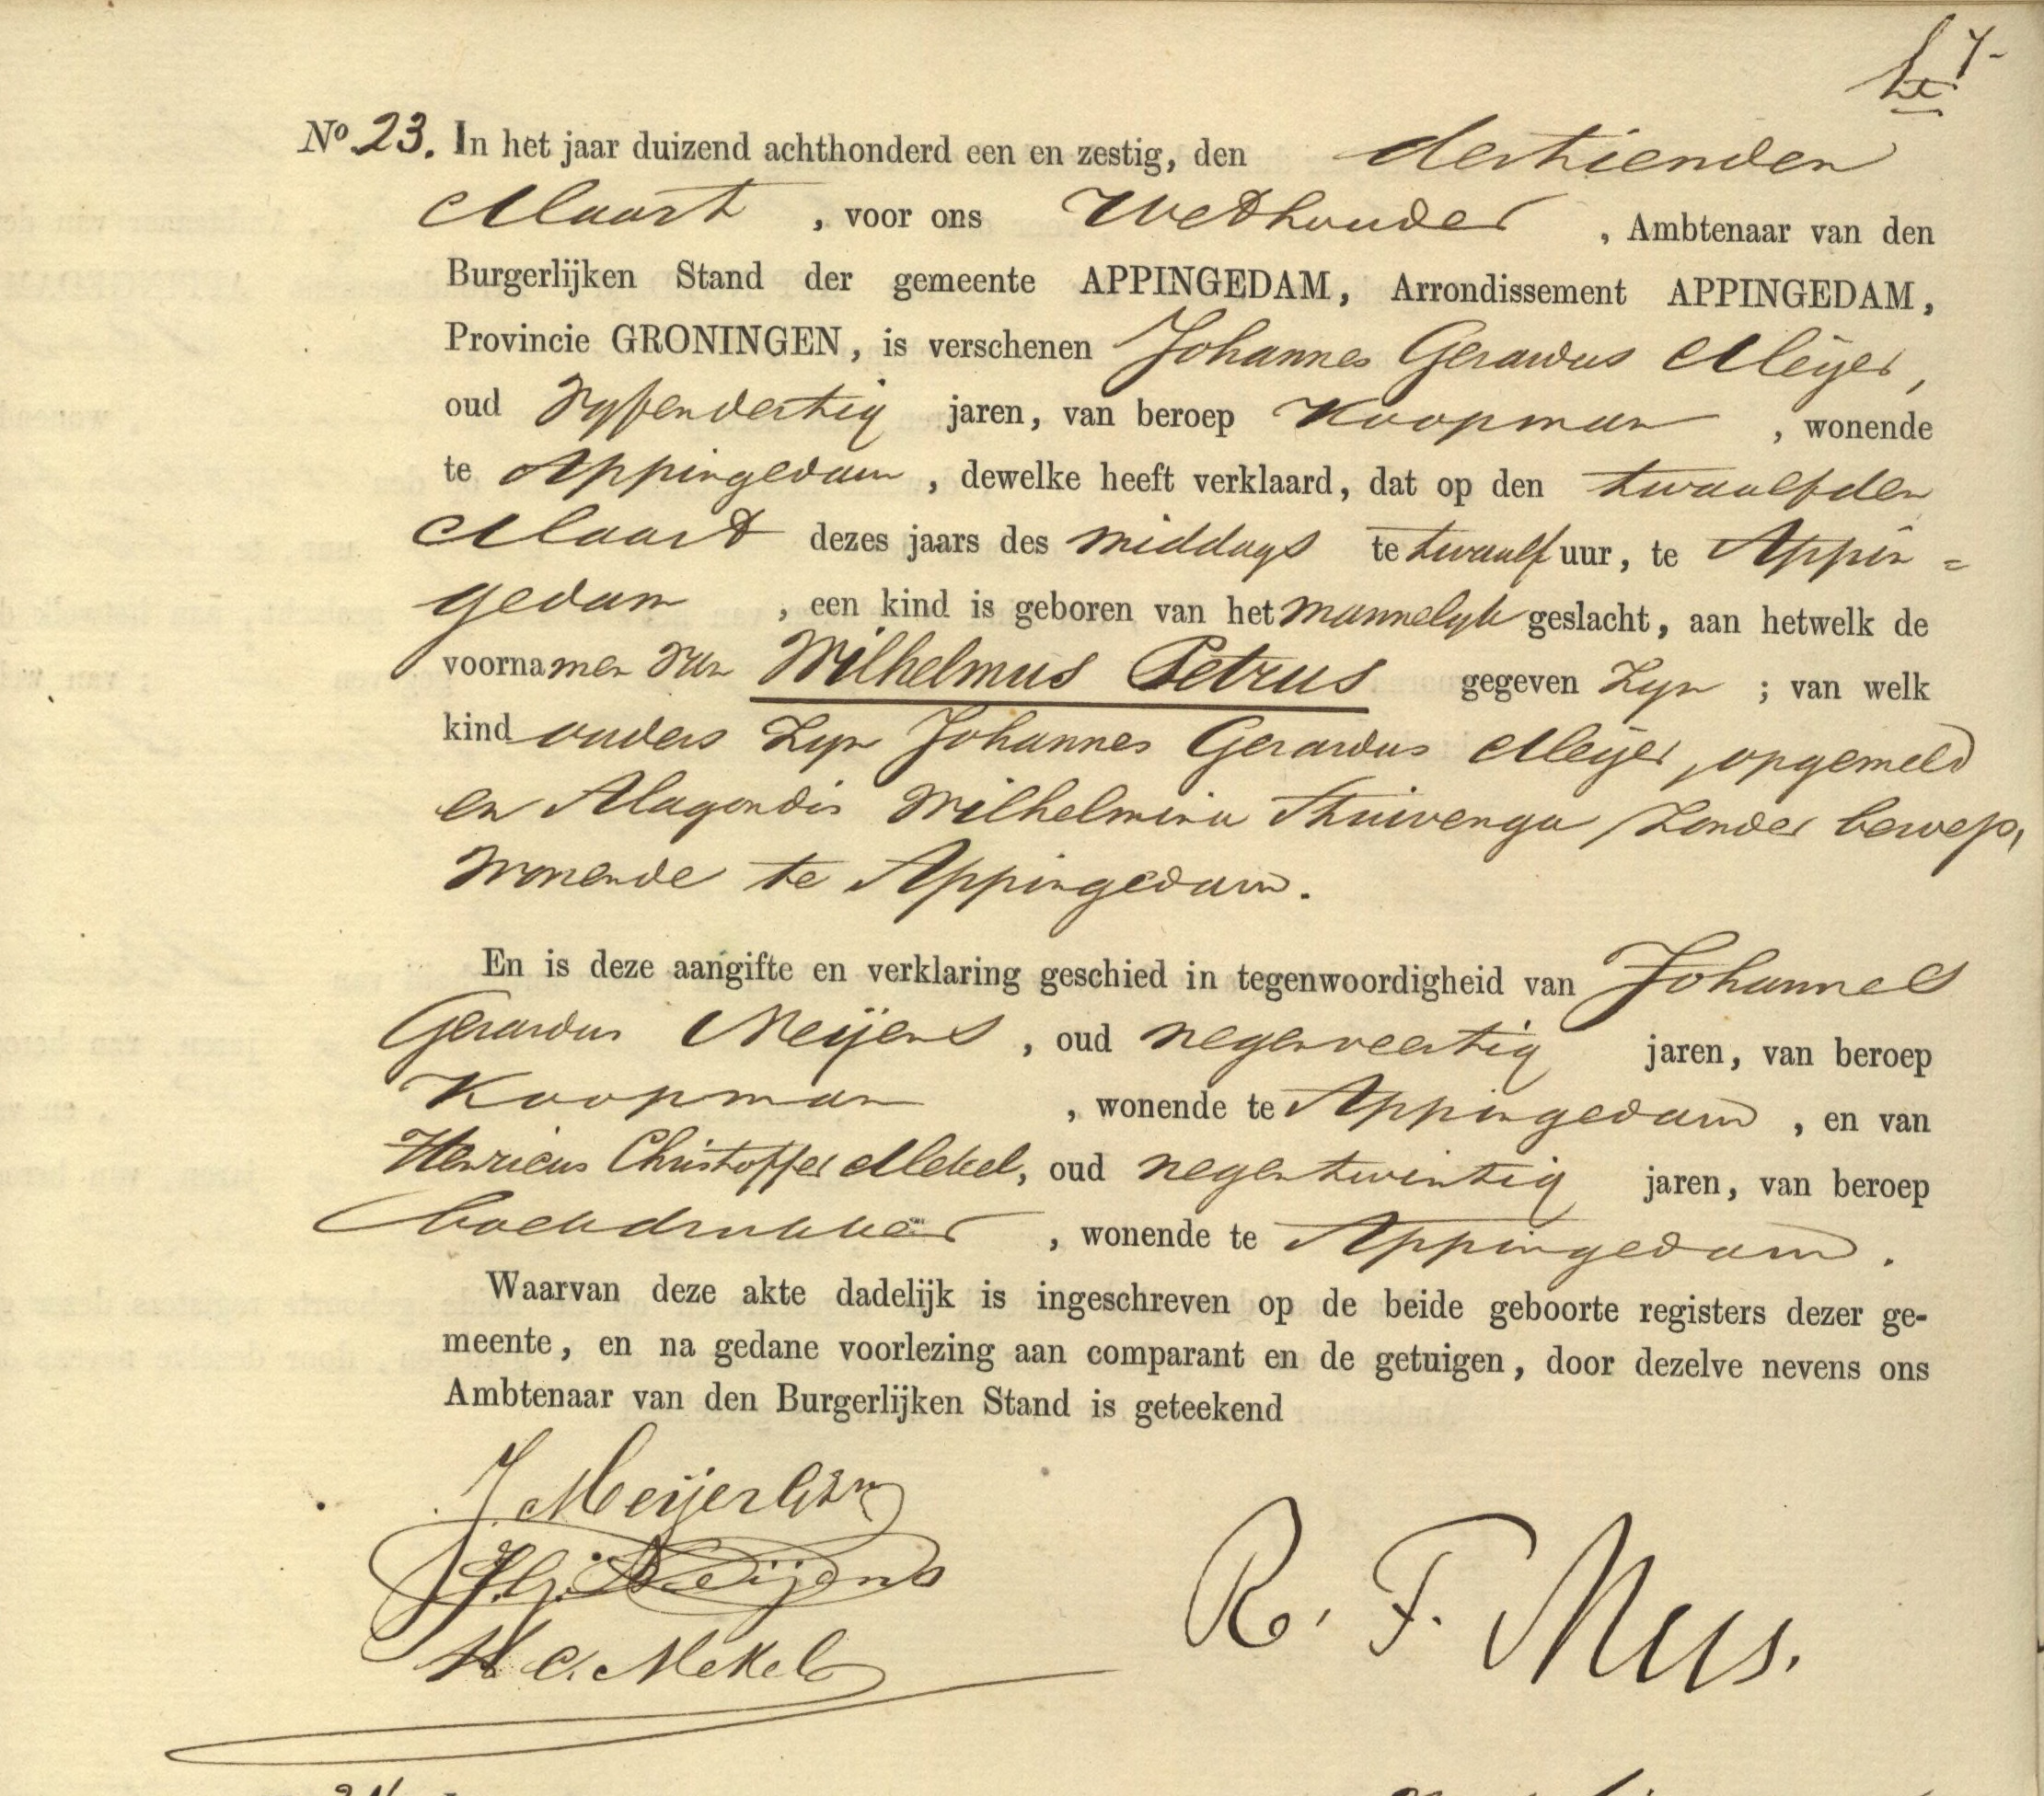 7
No 23. In het jaar duizend achthonderd een en zestig, den dertienden
Maart, voor ons Wethouder, Ambtenaar van den
Burgerlijken Stand der gemeente APPINGEDAM, Arrondissement APPINGEDAM,
Provincie GRONINGEN, is verschenen Johannes Gerardus Meijer,
oud vyfendertig jaren, van beroep Koopman, wonende
te Appingedam, dewelke heeft verklaard, dat op den twaalfden
Maart dezes jaars des middags te twaalf uur, te Appin=
gedam, een kind is geboren van het mannelyk geslacht, aan hetwelk de
voornamen van Wilhelmus Petrus gegeven zyn; van welk
kind ouders zyn Johannes Gerardus Meijer, opgemeld
en Alagondis Wilhelmina Thuivenga, zonder beroep,
wonende te Appingedam.
En is deze aangifte en verklaring geschied in tegenwoordigheid van Johannes
Gerardus Meijens, oud negenveertig jaren, van beroep
Koopman, wonende te Appingedam, en van
Henricus Christoffer Mekel, oud negentwintig jaren, van beroep
boekdrukker, wonende te Appingedam.
Waarvan deze akte dadelijk is ingeschreven op de beide geboorte registers dezer ge-
meente, en na gedane voorlezing aan comparant en de getuigen, door dezelve nevens ons
Ambtenaar van den Burgerlijken Stand is geteekend
J Meijer Gzn
J.G. Meijens
H C. Mekel
R. F. Mees.